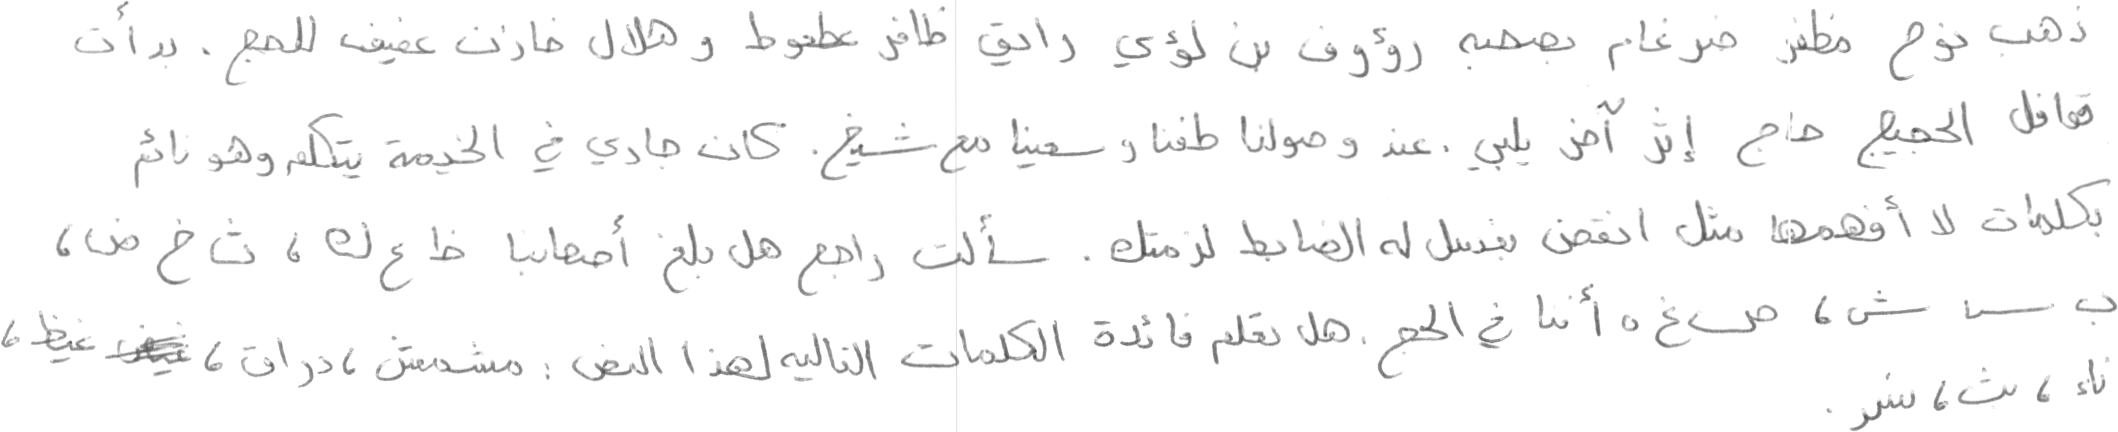 ذهب نوح مظفر ضرغام بصحبه رؤوف بن لؤي رايق ظافر عطعوط و هلال خازن عفيف للحج . بدأت
قوافل الحجيج حاج إثر آخر يلبي . عند وصولنا طفنا و سعينا مع شيخ . كان جاري في الخيمة يتكلم وهو نائم
بكلمات لا أفهمها مثل انقض بغسل له الضابط لزمتك . سألت راجع هل بلغ أصحابنا ظ ع ك ، ث خ ض ،
ب س ش ، ص غ ه أننا في الحج . هل تعلم فائدة الكلمات التاليه لهذا النص : مشمش ، دراق ، غيظ ،
ناء ، بث ، بئر .